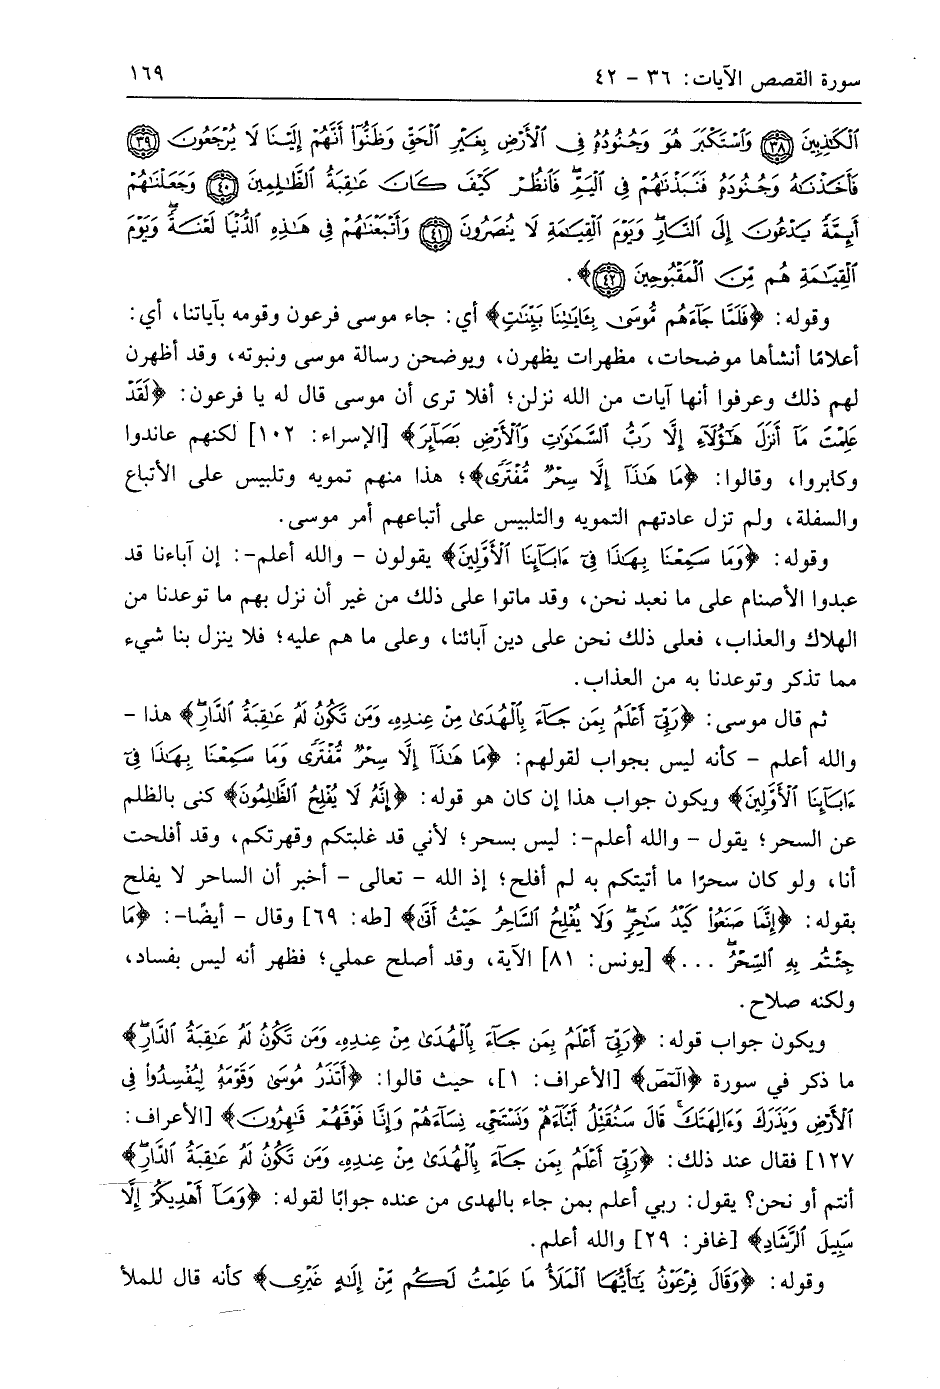 سورة القصص الآيات: ٣٦ - ٤٢
١٦٩
ٱلْكَٰذِبِينَ ﴿٣٨﴾ وَٱسْتَكْبَرَ هُوَ وَجُنُودُهُۥ فِى ٱلْأَرْضِ بِغَيْرِ ٱلْحَقِّ وَظَنُّوٓا۟ أَنَّهُمْ إِلَيْنَا لَا يُرْجَعُونَ ﴿٣٩﴾
فَأَخَذْنَٰهُ وَجُنُودَهُۥ فَنَبَذْنَٰهُمْ فِى ٱلْيَمِّ فَٱنظُرْ كَيْفَ كَانَ عَٰقِبَةُ ٱلظَّٰلِمِينَ ﴿٤٠﴾ وَجَعَلْنَٰهُمْ
أَئِمَّةً يَدْعُونَ إِلَى ٱلنَّارِ وَيَوْمَ ٱلْقِيَٰمَةِ لَا يُنصَرُونَ ﴿٤١﴾ وَأَتْبَعْنَٰهُمْ فِى هَٰذِهِ ٱلدُّنْيَا لَعْنَةً وَيَوْمَ
ٱلْقِيَٰمَةِ هُم مِّنَ ٱلْمَقْبُوحِينَ ﴿٤٢﴾﴾.
وقوله: ﴿فَلَمَّا جَآءَهُم مُّوسَىٰ بِـَٔايَٰتِنَا بَيِّنَٰتٍ﴾ أي: جاء موسى فرعون وقومه بآياتنا، أي:
أعلامًا أنشأها موضحات، مظهرات يظهرن، ويوضحن رسالة موسى ونبوته، وقد أظهرن
لهم ذلك وعرفوا أنها آيات من الله نزلن؛ أفلا ترى أن موسى قال له يا فرعون: ﴿لَقَدْ
عَلِمْتَ مَآ أَنزَلَ هَٰٓؤُلَآءِ إِلَّا رَبُّ ٱلسَّمَٰوَٰتِ وَٱلْأَرْضِ بَصَآئِرَ﴾ [الإسراء: ١٠٢] لكنهم عاندوا
وكابروا، وقالوا: ﴿مَا هَٰذَآ إِلَّا سِحْرٌ مُّفْتَرًى﴾؛ هذا منهم تمويه وتلبيس على الأتباع
والسفلة، ولم تزل عادتهم التمويه والتلبيس على أتباعهم أمر موسى.
وقوله: ﴿وَمَا سَمِعْنَا بِهَٰذَا فِىٓ ءَابَآئِنَا ٱلْأَوَّلِينَ﴾ يقولون - والله أعلم-: إن آباءنا قد
عبدوا الأصنام على ما نعبد نحن، وقد ماتوا على ذلك من غير أن نزل بهم ما توعدنا من
الهلاك والعذاب، فعلى ذلك نحن على دين آبائنا، وعلى ما هم عليه؛ فلا ينزل بنا شيء
مما تذكر وتوعدنا به من العذاب.
ثم قال موسى: ﴿رَبِّىٓ أَعْلَمُ بِمَن جَآءَ بِٱلْهُدَىٰ مِنْ عِندِهِۦ وَمَن تَكُونُ لَهُۥ عَٰقِبَةُ ٱلدَّارِ﴾ هذا -
والله أعلم - كأنه ليس بجواب لقولهم: ﴿مَا هَٰذَآ إِلَّا سِحْرٌ مُّفْتَرًى وَمَا سَمِعْنَا بِهَٰذَا فِىٓ
ءَابَآئِنَا ٱلْأَوَّلِينَ﴾ ويكون جواب هذا إن كان هو قوله: ﴿إِنَّهُۥ لَا يُفْلِحُ ٱلظَّٰلِمُونَ﴾ كنى بالظلم
عن السحر؛ يقول - والله أعلم-: ليس بسحر؛ لأني قد غلبتكم وقهرتكم، وقد أفلحت
أنا، ولو كان سحرًا ما أتيتكم به لم أفلح؛ إذ الله - تعالى - أخبر أن الساحر لا يفلح
بقوله: ﴿إِنَّمَا صَنَعُوا۟ كَيْدُ سَٰحِرٍ وَلَا يُفْلِحُ ٱلسَّاحِرُ حَيْثُ أَتَىٰ﴾ [طه: ٦٩] وقال - أيضًا-: ﴿مَا
جِئْتُم بِهِ ٱلسِّحْرُ ...﴾ [يونس: ٨١] الآية، وقد أصلح عملي؛ فظهر أنه ليس بفساد،
ولكنه صلاح.
ويكون جواب قوله: ﴿رَبِّىٓ أَعْلَمُ بِمَن جَآءَ بِٱلْهُدَىٰ مِنْ عِندِهِۦ وَمَن تَكُونُ لَهُۥ عَٰقِبَةُ ٱلدَّارِ﴾
ما ذكر في سورة ﴿الٓمٓصٓ﴾ [الأعراف: ١]، حيث قالوا: ﴿أَتَذَرُ مُوسَىٰ وَقَوْمَهُۥ لِيُفْسِدُوا۟ فِى
ٱلْأَرْضِ وَيَذَرَكَ وَءَالِهَتَكَ قَالَ سَنُقَتِّلُ أَبْنَآءَهُمْ وَنَسْتَحْىِۦ نِسَآءَهُمْ وَإِنَّا فَوْقَهُمْ قَٰهِرُونَ﴾ [الأعراف:
١٢٧] فقال عند ذلك: ﴿رَبِّىٓ أَعْلَمُ بِمَن جَآءَ بِٱلْهُدَىٰ مِنْ عِندِهِۦ وَمَن تَكُونُ لَهُۥ عَٰقِبَةُ ٱلدَّارِ﴾
أنتم أو نحن؟ يقول: ربي أعلم بمن جاء بالهدى من عنده جوابًا لقوله: ﴿وَمَآ أَهْدِيكُمْ إِلَّا
سَبِيلَ ٱلرَّشَادِ﴾ [غافر: ٢٩] والله أعلم.
وقوله: ﴿وَقَالَ فِرْعَوْنُ يَٰٓأَيُّهَا ٱلْمَلَأُ مَا عَلِمْتُ لَكُم مِّنْ إِلَٰهٍ غَيْرِى﴾ كأنه قال للملأ